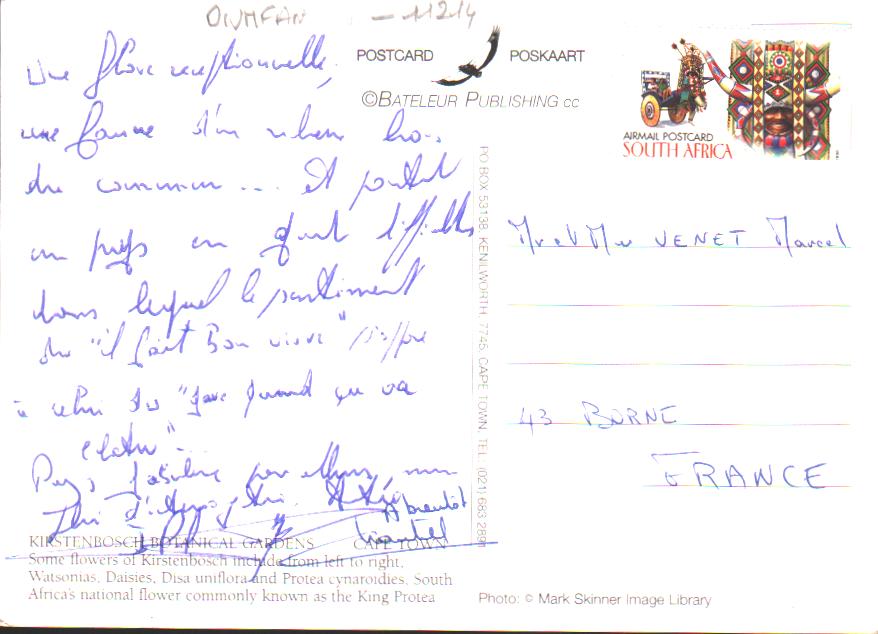 POSTCARD POSKAART
©BATELEUR PUBLISHING CC
AIRMAIL POSTCARD
SOUTH AFRICA
Une flore exceptionnelle,
une faune d'une richesse hors
du commun ... Et pourtant
un pays en quel difficultés
dans lequel le sentiment
du "il fait Bon vivre" s'oppose
à celui du "gare quand ça va
éclater"...
Pays fabuleux par ailleurs,
A bientôt
PO BOX 53138, KENILWORTH, 7745, CAPE TOWN. TEL: (021) 683 2891
Mr et Mme VENET Marcel
43 BORNE
FRANCE
KIRSTENBOSCH BOTANICAL GARDENS CAPE TOWN
Some flowers of Kirstenbosch include from left to right,
Watsonias, Daisies, Disa uniflora and Protea cynaroidies, South
Africa's national flower commonly known as the King Protea
Photo: © Mark Skinner Image Library